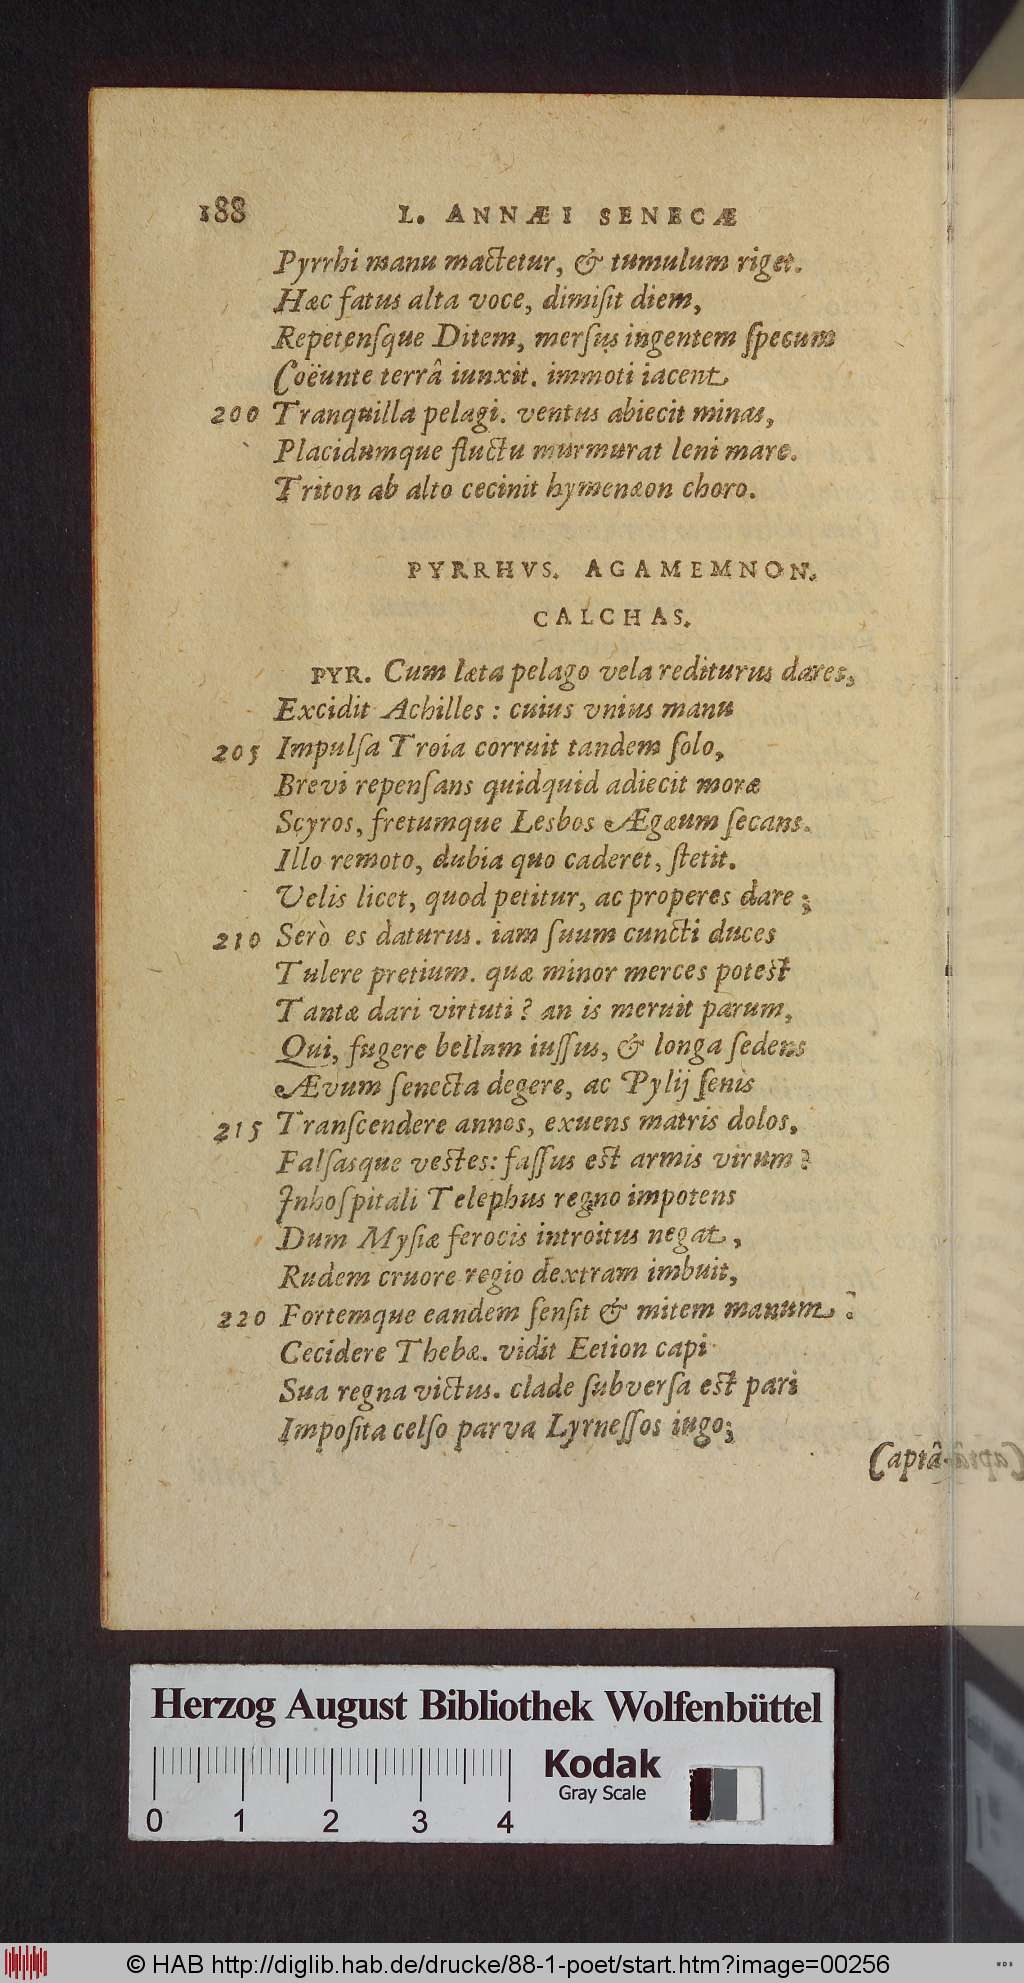 188 L. ANNÆI SENECÆ
Pyrrhi manu mactetur, & tumulum riget.
Hæc fatus alta voce, dimiſit diem,
Repetenſque Ditem, merſus ingentem ſpecum
Coëunte terrâ iunxit. immoti iacent
200 Tranquilla pelagi. ventus abiecit minas,
Placidumque fluctu murmurat leni mare.
Triton ab alto cecinit hymenæon choro.
PYRRHVS. AGAMEMNON.
CALCHAS.
PYR. Cum læta pelago vela rediturus dares,
Excidit Achilles : cuius vnius manu
205 Impulſa Troia corruit tandem ſolo,
Brevi repenſans quidquid adiecit moræ
Scyros, fretumque Lesbos Ægæum ſecans.
Illo remoto, dubia quo caderet, ſtetit.
Velis licet, quod petitur, ac properes dare ;
210 Serò es daturus. iam ſuum cuncti duces
Tulere pretium. quæ minor merces poteſt
Tantæ dari virtuti ? an is meruit parum,
Qui, fugere bellum iuſſus, & longa ſedens
Ævum ſenecta degere, ac Pylij ſenis
215 Tranſcendere annos, exuens matris dolos,
Falſasque veſtes: faſſus eſt armis virum ?
Inhoſpitali Telephus regno impotens
Dum Myſiæ ferocis introitus negat ,
Rudem cruore regio dextram imbuit,
220 Fortemque eandem ſenſit & mitem manum ?
Cecidere Thebæ. vidit Eetion capi
Sua regna victus. clade ſubverſa eſt pari
Impoſita celſo parva Lyrneſſos iugo;
Captâ
Herzog August Bibliothek Wolfenbüttel
Kodak
Gray Scale
0 1 2 3 4
© HAB http://diglib.hab.de/drucke/88-1-poet/start.htm?image=00256